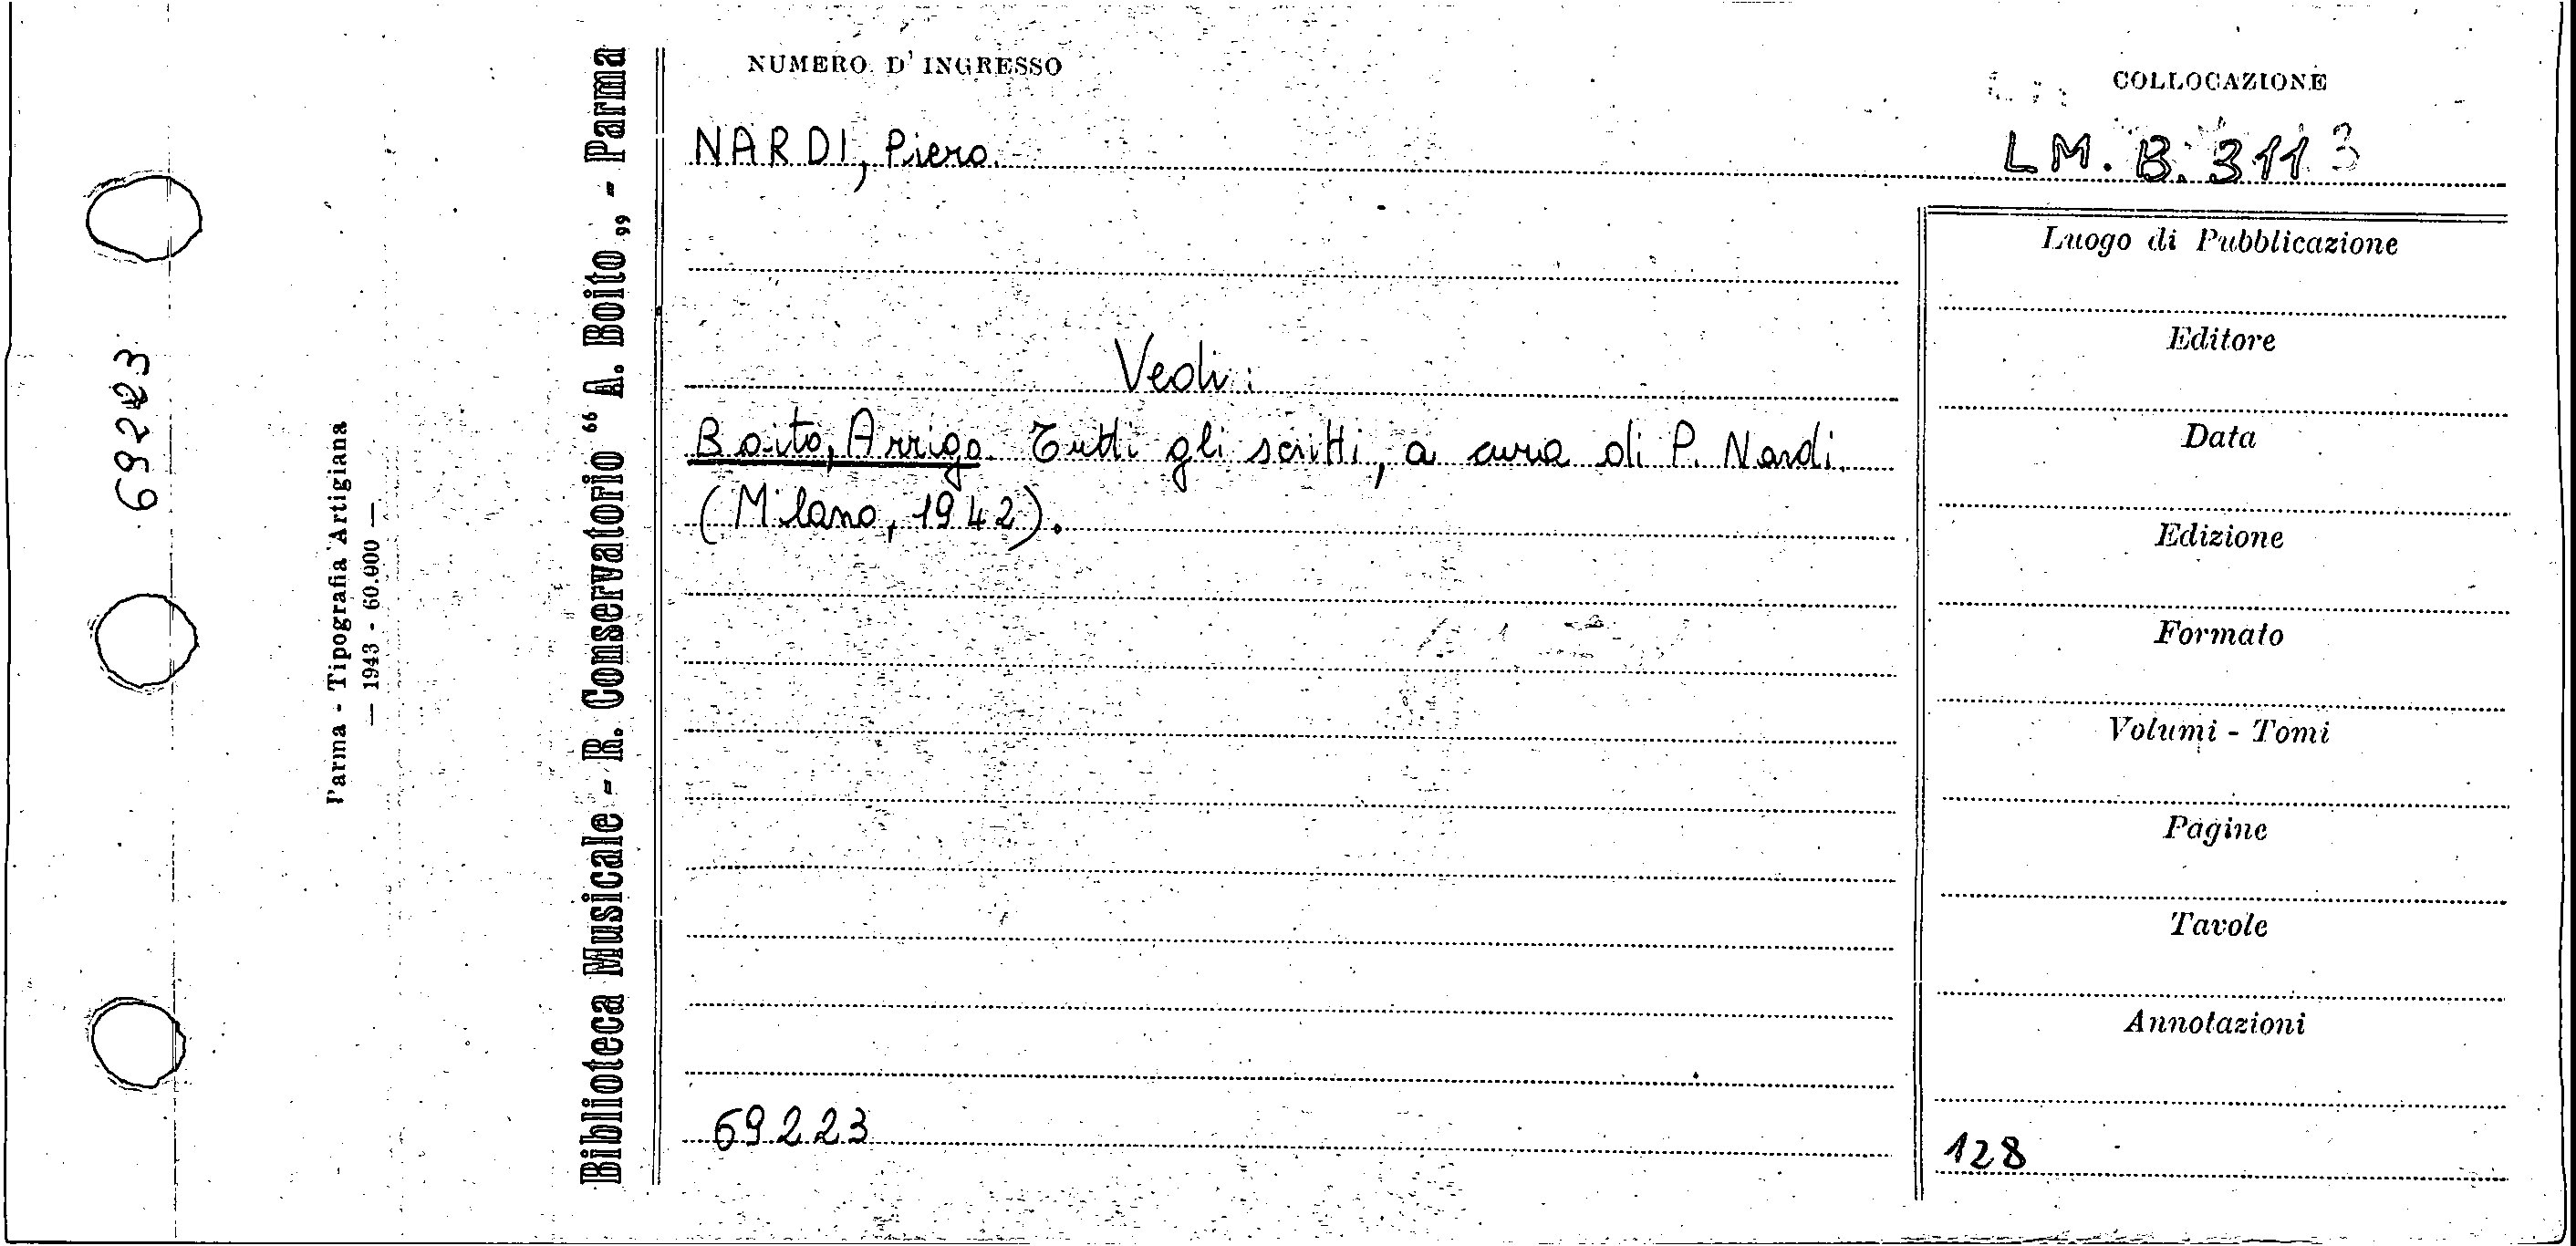 69223
Parma - Tipografia Artigiana
— 1943 - 60.000 —
Biblioteca Musicale - R. Conservatorio “ A. Boito „ - Parma
NUMERO D' INGRESSO
COLLOCAZIONE
NARDI, Piero.
LM. B. 3113
Vedi:
Boito, Arrigo. Tutti gli scritti, a cura di P. Nardi.
(Milano, 1942).
69223
Luogo di Pubblicazione
Editore
Data
Edizione
Formato
Volumi - Tomi
Pagine
Tavole
Annotazioni
128